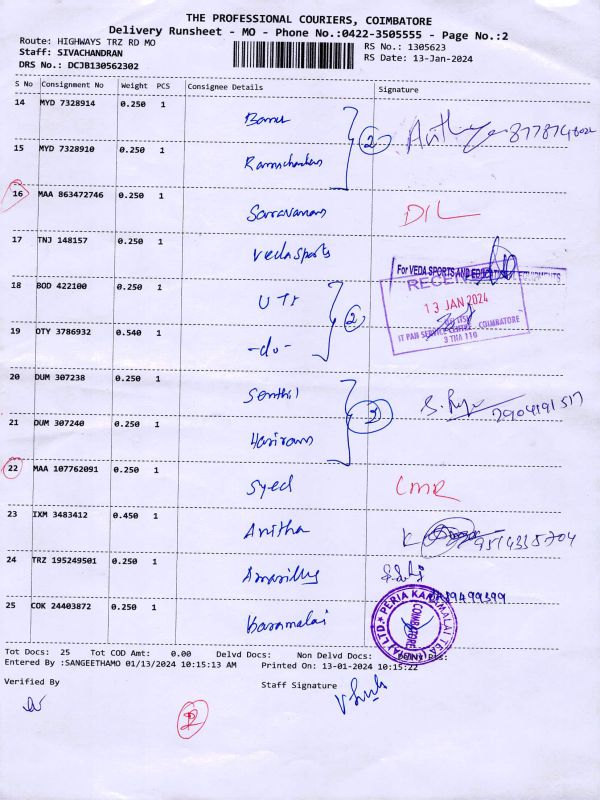 THE PROFESSIONAL COURIERS, COIMBATORE
Delivery Runsheet - MO - Phone No.:0422-3505555 - Page No.:2
Route: HIGHWAYS TRZ RD MO
RS No.: 1305623
Staff: SIVACHANDRAN
RS Date: 13-Jan-2024
DRS No.: DCJB130562302
S No Consignment No Weight PCS Consignee Details Signature
14 MYD 7328914 0.250 1 Banu
15 MYD 7328910 0.250 1 Ramachandran
2
16 MAA 863472746 0.250 1 Saravanan DIL
17 TNJ 148157 0.250 1 Veda Sports
For VEDA SPORTS AND EQUIPMENTS
18 BOD 422100 0.250 1 UTI
RECEIVED
13 JAN 2024
19 OTY 3786932 0.540 1 -do-
2
IT PAN SERVICE CENTRE COIMBATORE
3 THA 110
20 DUM 307238 0.250 1 Senthil
7904191517
21 DUM 307240 0.250 1 Hariram
3
22 MAA 107762091 0.250 1 Syed CMR
23 IXM 3483412 0.450 1 Anitha
24 TRZ 195249501 0.250 1
25 COK 24403872 0.250 1 Karamalai
PERIA KARAMALAI TEA
COIMBATORE
Tot Docs: 25 Tot COD Amt: 0.00 Delvd Docs: Non Delvd Docs:
Entered By :SANGEETHAMO 01/13/2024 10:15:13 AM Printed On: 13-01-2024 10:15:22
Verified By Staff Signature
2